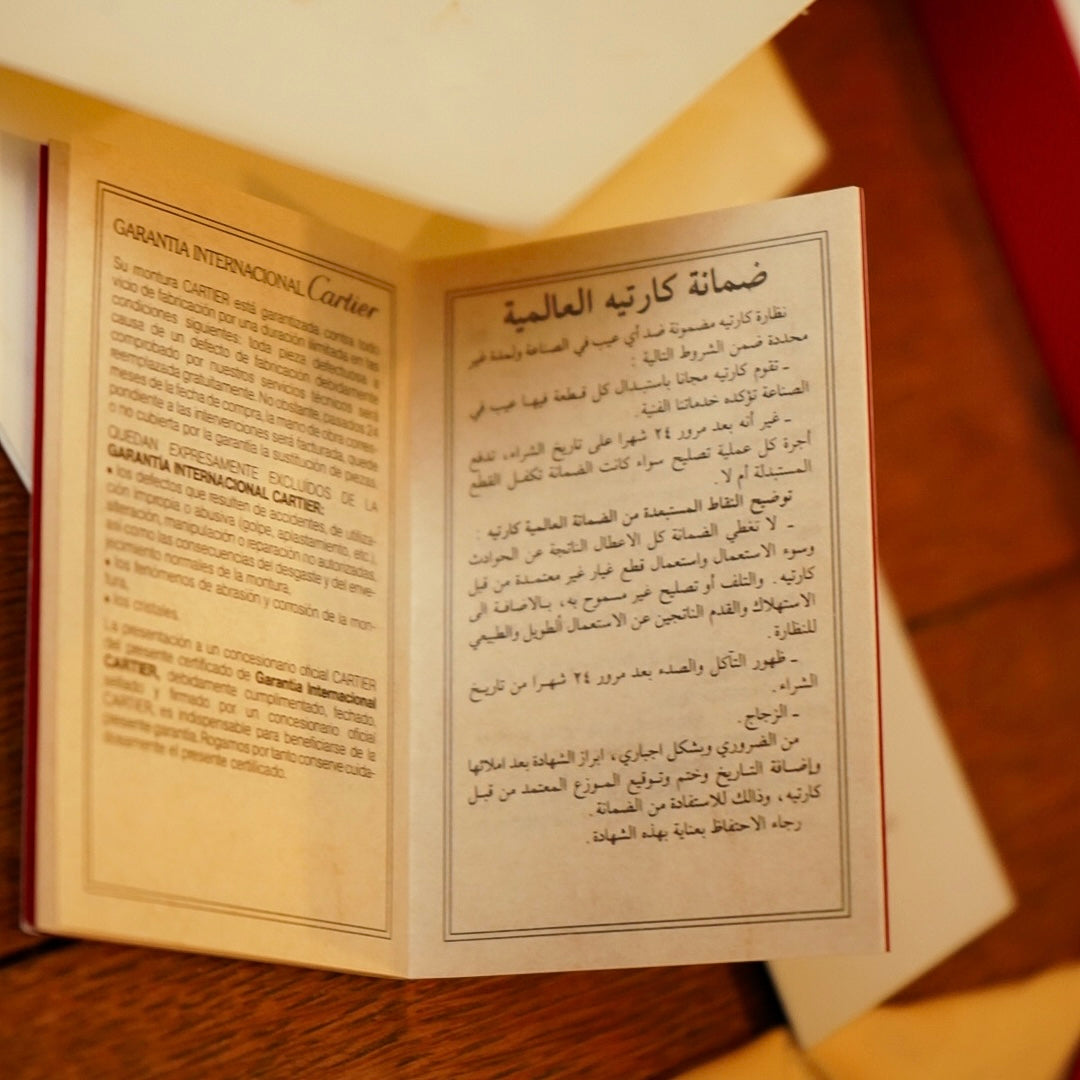 GARANTIA INTERNACIONAL Cartier
Su montura CARTIER está garantizada contra todo
vicio de fabricación por una duración ilimitada en las
condiciones siguientes: toda pieza defectuosa a
causa de un defecto de fabricación debidamente
comprobado por nuestros servicios técnicos será
reemplazada gratuitamente. No obstante, pasados 24
meses de la fecha de compra, la mano de obra corres-
pondiente a las intervenciones será facturada, quede
o no cubierta por la garantía la sustitución de piezas.
QUEDAN EXPRESAMENTE EXCLUÍDOS DE LA
GARANTÍA INTERNACIONAL CARTIER:
• los defectos que resulten de accidentes, de utiliza-
ción impropia o abusiva (golpe, aplastamiento, etc.),
alteración, manipulación o reparación no autorizadas,
así como las consecuencias del desgaste y del enve-
jecimiento normales de la montura,
• los fenómenos de abrasión y corrosión de la mon-
tura,
• los cristales.
La presentación a un concesionario oficial CARTIER
del presente certificado de Garantía Internacional
CARTIER, debidamente cumplimentado, fechado,
sellado y firmado por un concesionario oficial
CARTIER, es indispensable para beneficiarse de la
presente garantía. Rogamos por tanto conserve cuida-
dosamente el presente certificado.
ضمانة كارتيه العالمية
نظارة كارتيه مضمونة ضد أي عيب في الصناعة ولمدة غير
محددة ضمن الشروط التالية :
ـ تقوم كارتيه مجانا باستبدال كل قطعة فيها عيب في
الصناعة تؤكده خدماتنا الفنية .
ـ غير أنه بعد مرور ٢٤ شهرا على تاريخ الشراء، تدفع
أجرة كل عملية تصليح سواء كانت الضمانة تكفل القطع
المستبدلة أم لا .
توضيح النقاط المستبعدة من الضمانة العالمية كارتيه :
ـ لا تغطي الضمانة كل الاعطال الناتجة عن الحوادث
وسوء الاستعمال واستعمال قطع غيار غير معتمدة من قبل
كارتيه . والتلف أو تصليح غير مسموح به، بالاضافة الى
الاستهلاك والقدم الناتجين عن الاستعمال الطويل والطبيعي
للنظارة .
ـ ظهور التآكل والصدء بعد مرور ٢٤ شهرا من تاريخ
الشراء .
ـ الزجاج .
من الضروري وبشكل اجباري، ابراز الشهادة بعد املائها
وإضافة التاريخ وختم وتوقيع الموزع المعتمد من قبل
كارتيه، وذالك للاستفادة من الضمانة .
رجاء الاحتفاظ بعناية بهذه الشهادة .